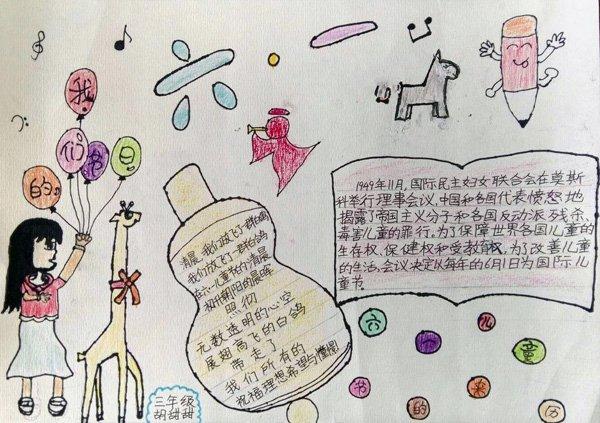 六一
我们的节日
1949年11月,国际民主妇女联合会在莫斯
科举行理事会议,中国和各国代表愤怒地
揭露了帝国主义分子和各国反动派残杀、
毒害儿童的罪行。为了保障世界各国儿童的
生存权、保健权和受教育权,为了改善儿童
的生活,会议决定以每年的6月1日为国际儿
童节。
清晨我们放飞一群白鸽
我们放飞一群白鸽
在六一儿童节的清晨
初升朝阳的晨晖
照彻
无数透明的心空
展翅高飞的白鸽
带走了
我们所有的
祝福理想希望与憧憬
六一儿童
节的来历
三年级
胡甜甜